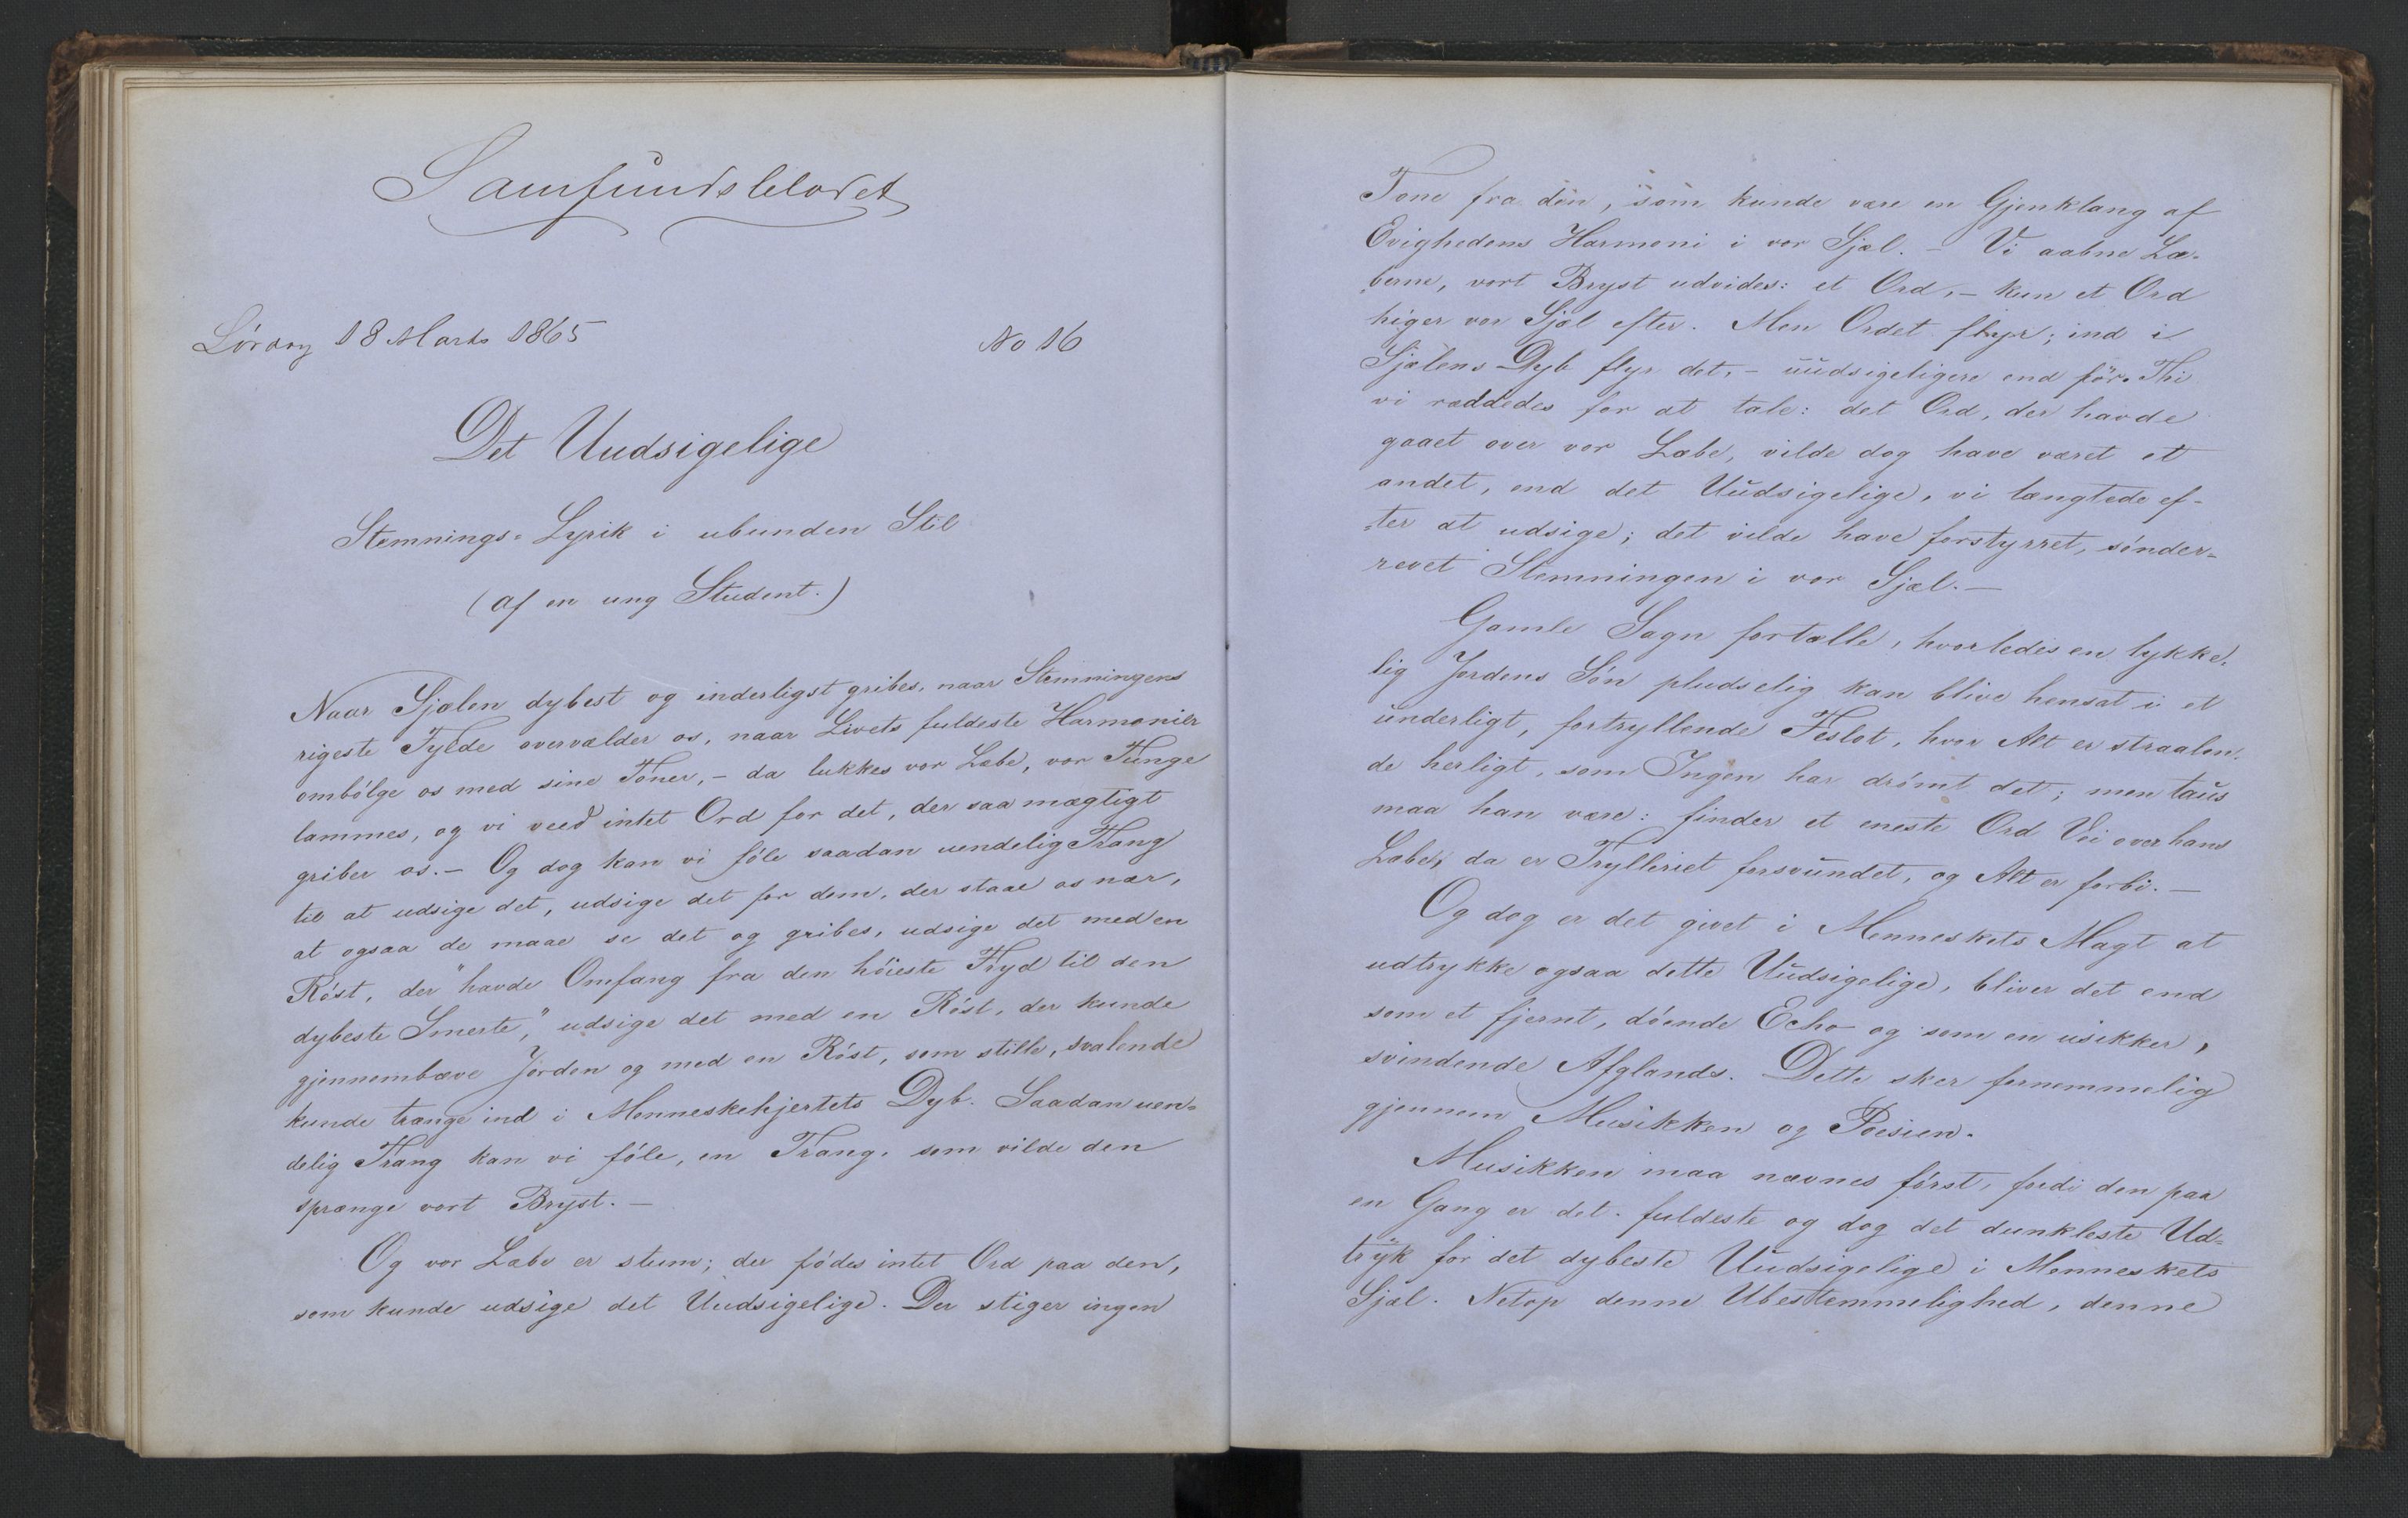 Samfundsbladet
Lördag 18 Marts 1865
No 16
Det Uudsigelige
Stemnings-Lyrik i ubunden Stil
(af en ung Student.)
Naar Sjælen dybest og inderligst gribes, naar Stemningens
rigeste Fylde overvælder os, naar Livets fuldeste Harmonier
ombölge os med sine Toner, – da lukkes vor Læbe, vor Tunge
lammes, og vi veed intet Ord for det, der saa mægtigt
griber os. – Og dog kan vi föle saadan uendelig Trang
til at udsige det, udsige det for dem, der staae os nær,
at ogsaa de maae se det og gribes, udsige det med en
Röst, der "havde Omfang fra den höieste Fryd til den
dybeste Smerte," udsige det med en Röst, der kunde
gjennembæve Jorden og med en Röst, som stille, svalende
kunde trænge ind i Menneskehjertets Dyb. Saadan uen-
delig Trang kan vi föle, en Trang, som vilde den
sprænge vort Bryst. –
Og vor Læbe er stum; der födes intet Ord paa den,
som kunde udsige det Uudsigelige. Der stiger ingen
Tone fra den, som kunde være en Gjenklang af
Evighedens Harmoni i vor Sjæl. – Vi aabne Læ-
berne, vort Bryst udvides: et Ord, – kun et Ord
higer vor Sjæl efter. Men Ordet flyr; ind i
Sjælens Dyb flyr det, – uudsigeligere end för. Thi
vi ræddedes for at tale: det Ord, der havde
gaaet over vor Læbe, vilde dog have været et
andet, end det Uudsigelige, vi længtede ef-
ter at udsige; det vilde have forstyrret, sönder-
revet Stemningen i vor Sjæl. –
Gamle Sagn fortælle, hvorledes en lykke-
lig Jordens Sön pludselig kan blive hensat i et
underligt, fortryllende Feslot, hvor Alt er straalen-
de herligt, som Ingen har drömt det; men taus
maa han være: finder et eneste Ord Vei over hans
Læbe, da er Trylleriet forsvundet, og Alt er forbi. –
Og dog er det givet i Menneskets Magt at
udtrykke ogsaa dette Uudsigelige, bliver det end
som et fjernt, döende Echo og som en usikker,
svindende Afglands. Dette sker fornemmelig
gjennem Musikken og Poesien.
Musikken maa nævnes först, fordi den paa
en Gang er det fuldeste og dog det dunkleste Ud-
tryk for det dybeste Uudsigelige i Menneskets
Sjæl. Netop denne Ubestemmelighed, denne